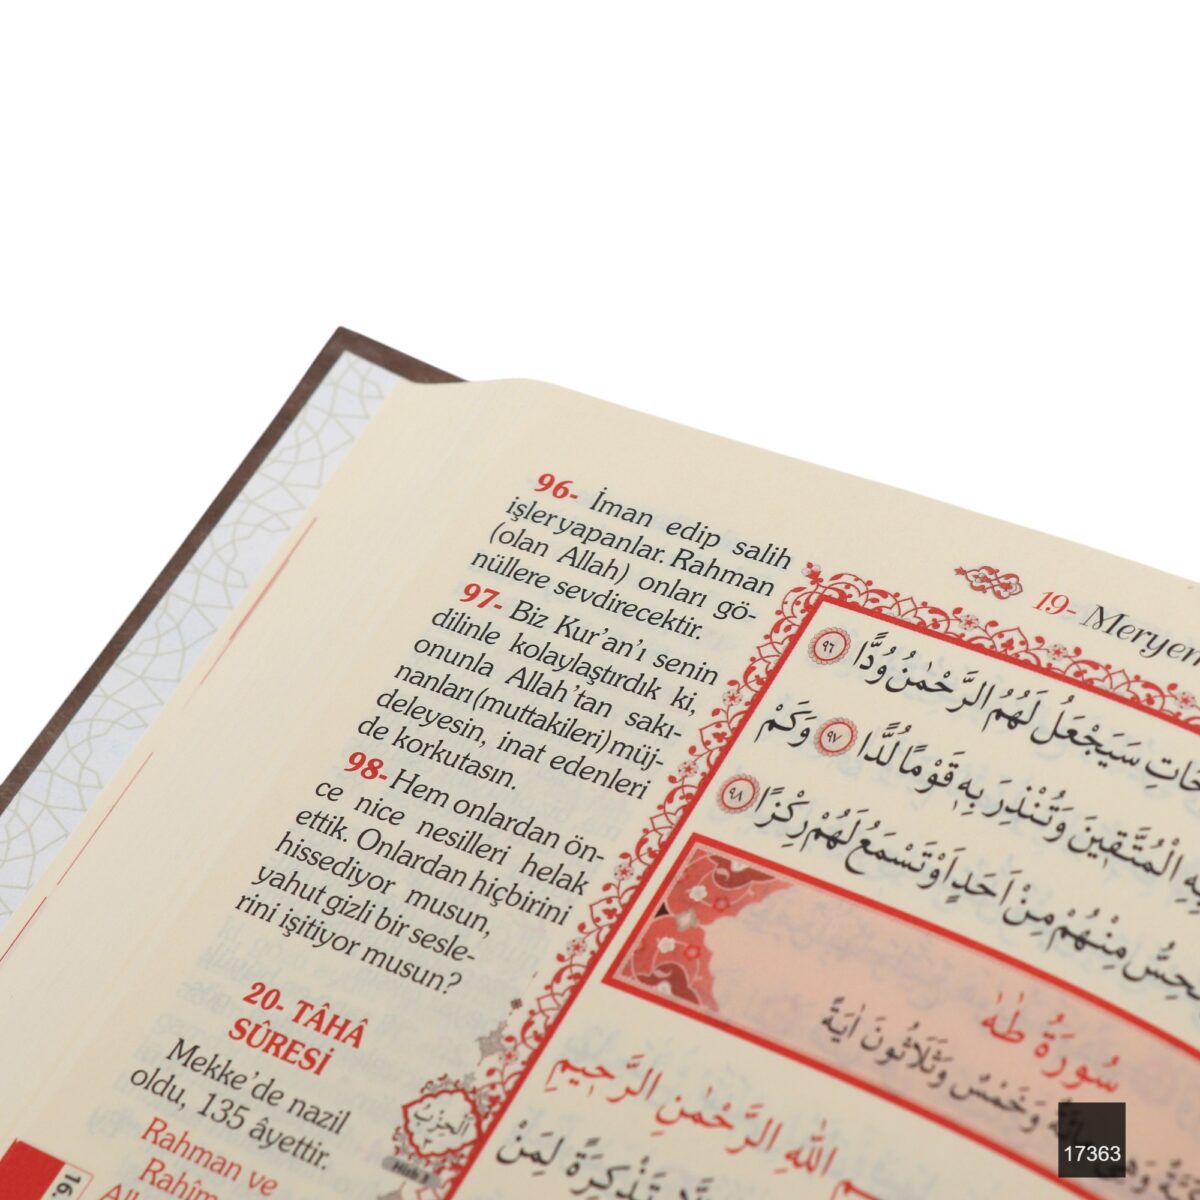 96- İman edip salih
işler yapanlar. Rahman
(olan Allah) onları gö-
nüllere sevdirecektir.
97- Biz Kur'an'ı senin
dilinle kolaylaştırdık ki,
onunla Allah'tan sakı-
nanları (muttakileri) müj-
deleyesin, inat edenleri
de korkutasın.
98- Hem onlardan ön-
ce nice nesilleri helak
ettik. Onlardan hiçbirini
hissediyor musun,
yahut gizli bir sesle-
rini işitiyor musun?
20- TÂHÂ
SÛRESİ
Mekke'de nazil
oldu, 135 âyettir.
Rahman ve
Rahîm
16.
19- Meryem
سَيَجْعَلُ لَهُمُ الرَّحْمٰنُ وُدًّا ٩٦
الْمُتَّقٖينَ وَتُنْذِرَ بِهٖ قَوْمًا لُدًّا ٩٧ وَكَمْ
مِنْهُمْ مِنْ اَحَدٍ اَوْ تَسْمَعُ لَهُمْ رِكْزًا ٩٨
سُورَةُ طٰهٰ
وَخَمْسٌ وَثَلَاثُونَ اٰيَةً
اللّٰهِ الرَّحْمٰنِ الرَّحٖيمِ
تَذْكِرَةً لِمَنْ
اَلْحِزْبُ
17363